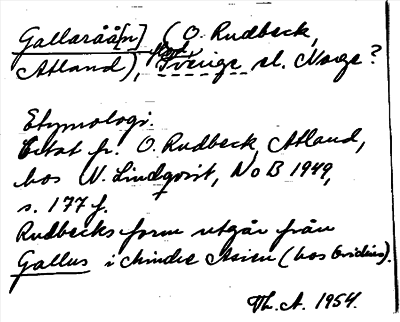 Gallaråå[n] (O. Rudbeck,
Atland), Sverige el. Norge?
Etymologi.
Citat fr. O. Rudbeck, Atland,
hos N. Lindqvist, NoB 1949,
s. 177 f.
Rudbecks form utgår från
Gallus i Mindre Asien (hos Ovidius).
Th. A. 1954.